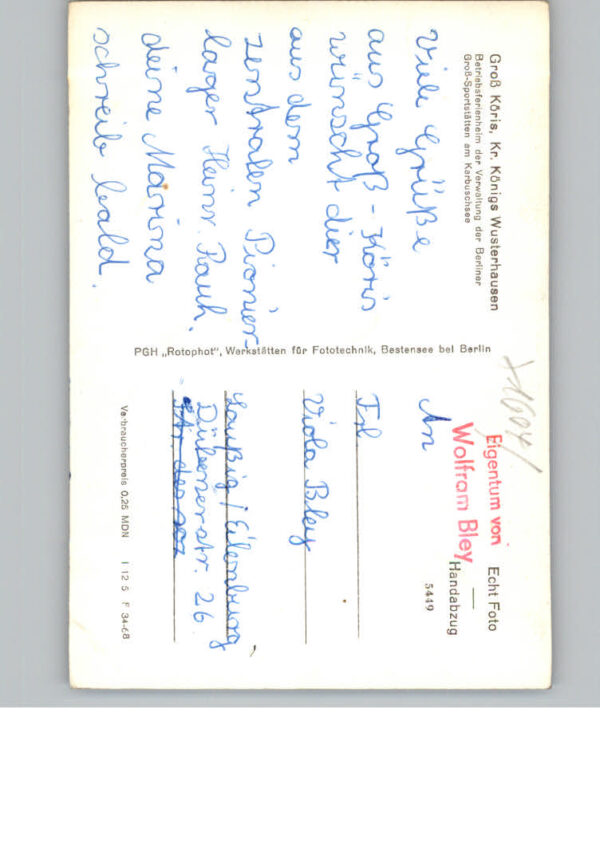 Groß Köris, Kr. Königs Wusterhausen
Betriebsferienheim der Verwaltung der Berliner
Groß-Sportstätten am Karbuschsee
Viele Grüße
aus Groß-Köris
wünscht dier
aus dem
zentralen Pionier-
lager Heinr. Rauh.
deine Marina
schreib bald.
PGH „Rotophot", Werkstätten für Fototechnik, Bestensee bei Berlin
Eigentum von
Wolfram Bley
Echt Foto
Handabzug
5449
An
Frl
Viola Bley
Laußig / Eilenburg
Dübenerstr. 26
Verbraucherpreis 0,25 MDN I 12 5 F 34-68